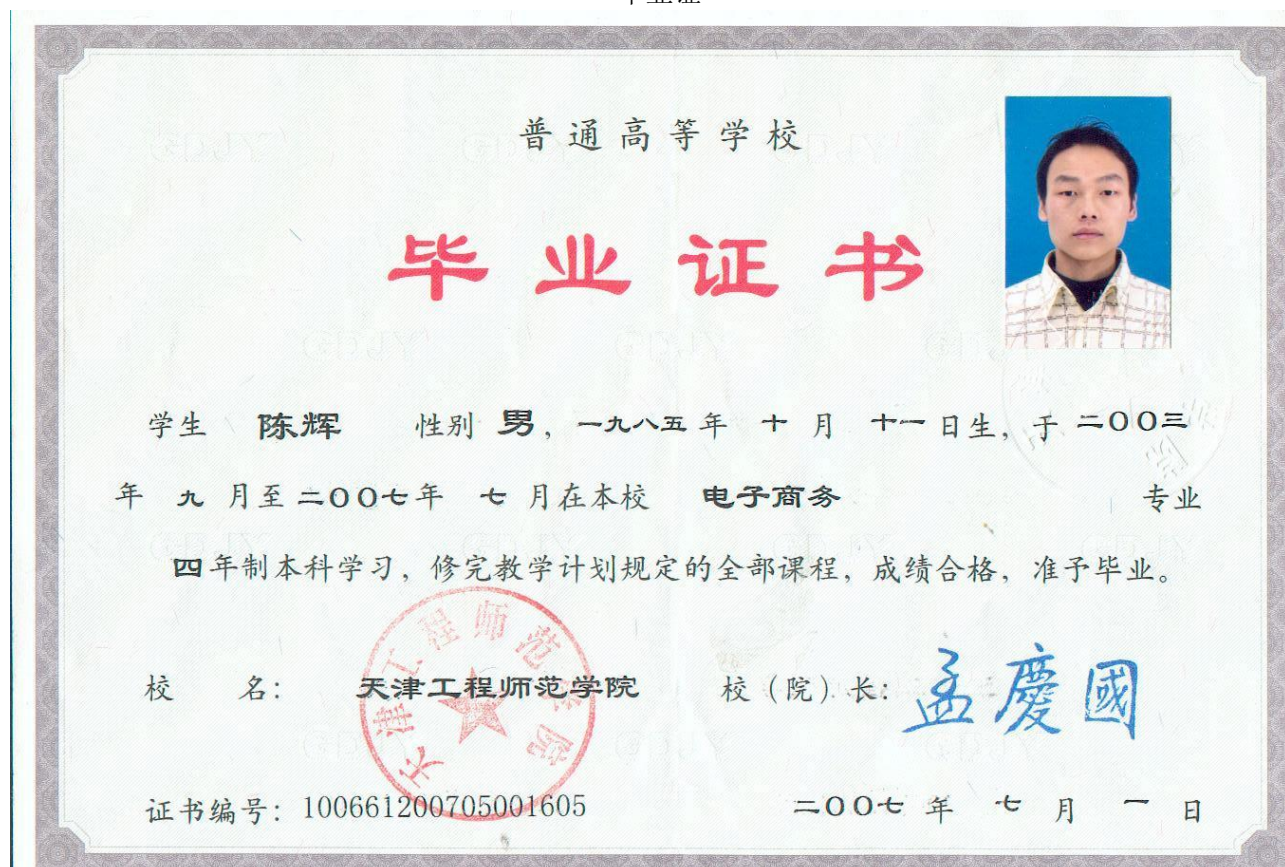 普通高等学校
毕业证书
学生 陈辉 性别 男，一九八五年 十 月 十一 日生，于 二〇〇三
年 九 月至 二〇〇七年 七 月在本校 电子商务 专业
四年制本科学习，修完教学计划规定的全部课程，成绩合格，准予毕业。
校 名： 天津工程师范学院 校（院）长： 孟慶國
天津工程师范学院
证书编号：100661200705001605 二〇〇七 年 七 月 一 日